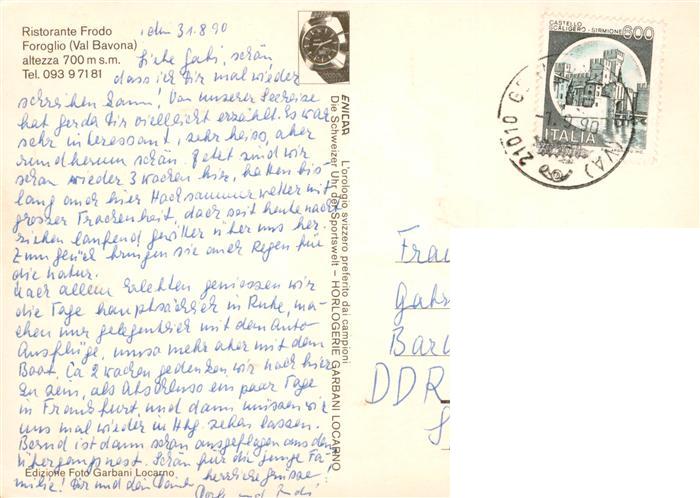 Ristorante Frodo
Foroglio (Val Bavona)
altezza 700 m s.m.
Tel. 093 9 71 81
den 31.8.90
Liebe Gabi, schön,
dass ich Dir mal wieder
schreiben kann! Von unserer Seereise
hat Gerda Dir vielleicht erzählt. Es war
sehr interessant, sehr heiss, aber
rundherum schön. Jetzt sind wir
schon wieder 3 Wochen hier, hatten bis-
lang auch hier Hochsommerwetter mit
grosser Trockenheit, doch seit heute nacht
ziehen laufend Gewitter über uns her.
Zum Glück bringen sie auch Regen für
die Natur.
Nach allem Erlebten geniessen wir
die Tage hauptsächlich in Ruhe, ma-
chen nur gelegentlich mit dem Auto
Ausflüge, umso mehr aber mit dem
Boot. Ca 2 Wochen gedenken wir noch hier
zu sein, als Abschluss ein paar Tage
in Frankfurt, und dann müssen wir
uns mal wieder in Hbg. sehen lassen.
Bernd ist dann schon ausgeflogen aus dem
Schön für die junge Fa-
milie! Dir und den herzliche Grüsse
und
Edizione Foto Garbani Locarno
ENICAR L'orologio svizzero preferito dai campioni
Die Schweizer Uhr der Sportswelt – HORLOGERIE GARBANI LOCARNO
CASTELLO
SCALIGERO - SIRMIONE
600
ITALIA
21010
(VA)
1.9.90
Frau
Gab
Bar
DDR